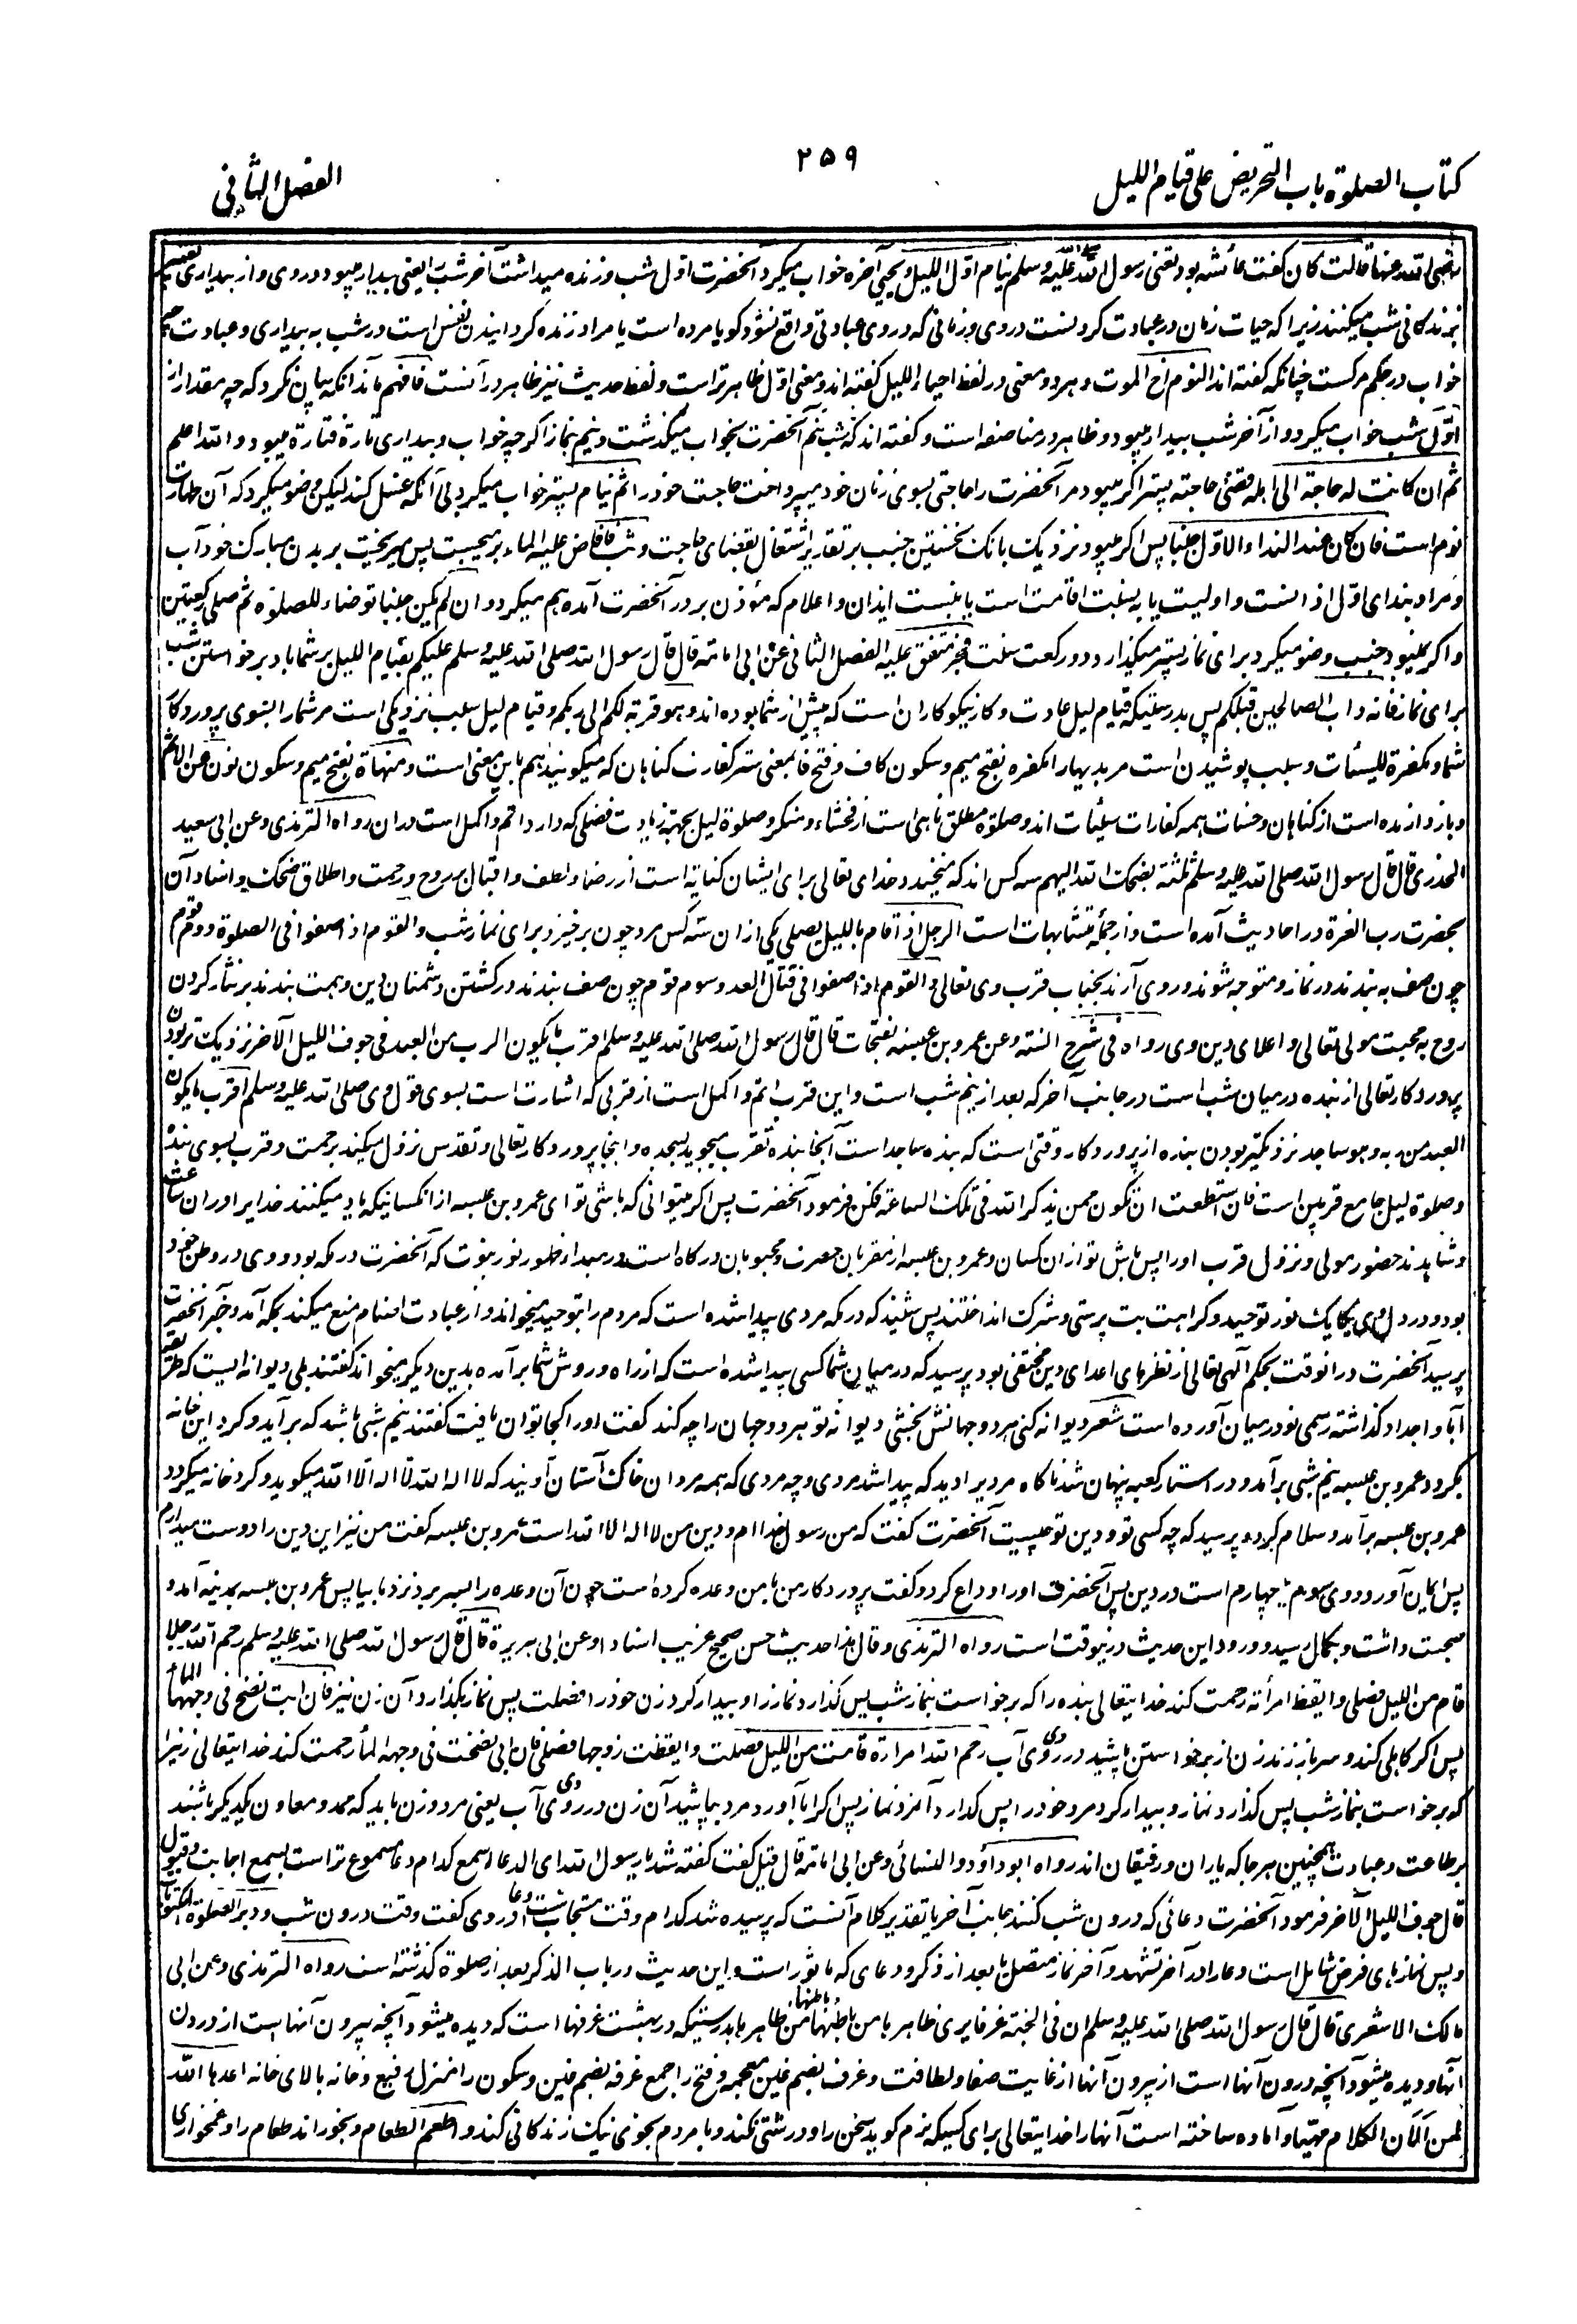 کتاب الصلوة باب التحریض علی قیام اللیل
۲۵۹
الفصل الثانی
رضی الله عنها قالت کان گفت عائشه بود یعنی رسول الله صلی الله علیه وسلم ینام اول اللیل ویحیی آخره خواب میکرد آنحضرت اول شب وزنده میداشت آخر شب را یعنی بیدار میبود دروی واز بیداری تعبیر
بزندگانی شب میکنند زیرا که حیات زمان در عبادت کردنست دروی وزمانی که دروی عبادتی واقع نشود گویا مرده است یا مراد زنده گردانیدن نفس است در شب به بیداری وعبادت چه
خواب در حکم مرگست چنانکه گفته اند النوم اخ الموت وهردو معنی در لفظ احیاء اللیل گفته اند ومعنی اول ظاهرتر است ولفظ حدیث نیز ظاهر در آنست فافهم ماند آنکه بیان نکرد که چه مقدار از
اول شب خواب میکرد واز آخر شب بیدار میبود وظاهر در مناصفه است وگفته اند که شب نیم آنحضرت بخواب میگذشت ونیم بنماز اگرچه خواب وبیداری تارة فتارة میبود والله اعلم
ثم ان کانت له حاجة الی اهله قضی حاجته پستر اگر میبود مر آنحضرت را حاجتی بسوی زنان خود میپرداخت حاجت خود را ثم ینام پستر خواب میکرد بی آنکه غسل کند لیکن وضو میکرد که آن طهارت
نوم است فان کان عند النداء الاول جنبا پس اگر میبود نزدیک بانگ نخستین جنب بر تقدیر اشتغال بقضای حاجت وثب فافاض علیه الماء بر میجست پس میریخت بر بدن مبارک خود آب
ومراد بندای اول اذانست واولیت یا به نسبت اقامت است یا بنسبت ایذان واعلام که مؤذن بر در آنحضرت آمده هم میکرد وان لم یکن جنبا توضاء للصلوة ثم صلی رکعتین
واگر نمیبود جنب وضو میکرد برای نماز پستر میگذارد دو رکعت سنت فجر متفق علیه الفصل الثانی عن ابی امامة قال قال رسول الله صلی الله علیه وسلم علیکم بقیام اللیل بر شما باد برخواستن شب
برای نماز فانه داب الصالحین قبلکم پس بدرستیکه قیام لیل عادت وکار نیکوکاران است که پیش از شما بوده اند وهو قربة لکم الی ربکم وقیام لیل سبب نزدیکی است مر شما را بسوی پروردگار
شما ومکفرة للسیئات وسبب پوشیدن است مر بدیها را مکفره بفتح میم وسکون کاف وفتح فا بمعنی ستر کفارت گناهان که میگویند هم باین معنی است ومنهاة بفتح میم وسکون نون عن الاثم
وباز دارنده است از گناهان وحسنات همه کفارات سیئات اند وصلوة مطلق ناهی است از فحشاء ومنکر وصلوة لیل بجهة زیادت فضلی که دارد اتم واکمل است دران رواه الترمذی وعن ابی سعید
الخدری قال قال رسول الله صلی الله علیه وسلم ثلثة یضحک الله الیهم سه کس اند که میخندد خدای تعالی برای ایشان کنایة است از رضا ولطف واقبال بروح ورحمت واطلاق ضحک واسناد آن
بحضرت رب العزة در احادیث آمده است واز جملهٔ متشابهات است الرجل اذا قام باللیل یصلی یکی ازان سه کس مرد چون برخیزد برای نماز شب والقوم اذا صفوا فی الصلوة ودوم قوم
چون صف به بندند در نماز ومتوجه شوند وروی آرند بجناب قرب وی تعالی والقوم اذا صفوا فی قتال العدو وسوم قوم چون صف بندند در کشتن دشمنان دین وهمت بندند بر نثار کردن
روح به محبت مولی تعالی واعلای دین وی رواه فی شرح السنة وعن عمرو بن عبسه بفتحات قال قال رسول الله صلی الله علیه وسلم اقرب ما یکون الرب من العبد فی جوف اللیل الآخر نزدیک تر بودن
پروردگار تعالی از بنده در میان شب است در جانب آخر که بعد از نیم شب است واین قرب اتم واکمل است از قربی که اشارت است بسوی قول وی صلی الله علیه وسلم اقرب ما یکون
العبد من ربه وهو ساجد نزدیکتر بودن بنده از پروردگار وقتی است که بنده ساجد است آنجا بنده تقرب میجوید بسجده واینجا پروردگار تعالی وتقدس نزول میکند برحمت وقرب بسوی بنده
وصلوة لیل جامع قربین است فان استطعت ان تکون ممن یذکر الله فی تلک الساعة فکن فرمود آنحضرت پس اگر میتوانی که باشی تو ای عمرو بن عبسه از انکسانیکه یاد میکنند خدایرا دران ساعت
وشاهدند حضور مولی ونزول قرب اورا پس باش تو ازان کسان وعمرو بن عبسه از مقربان حضرت ومحبوبان درگاه است در مبداء ظهور نور نبوت که آنحضرت در مکه بود ووی در وطن خود
بود ودر دل وی یکایک نور توحید وکراهت بت پرستی وشرک انداختند پس شنید که در مکه مردی پیدا شده است که مردم را بتوحید میخواند واز عبادت اصنام منع میکند بمکه آمد وخبر آنحضرت
پرسید آنحضرت در انوقت بحکم الهی تعالی از نظرهای اعدای دین مختفی بود پرسید که در میان شما کسی پیدا شده است که از راه وروش شما بر آمده بدین دیگر میخواند گفتند بلی دیوانه ایست که طریقه
آبا واجداد گذاشته رسمی نو در میان آورده است شعر دیوانه کنی هردو جهانش بخشی دیوانه تو هردو جهان را چه کند گفت اورا کجا توان یافت گفتند نیم شبی باشد که برآید وگرد این خانه
بگردد عمرو بن عبسه نیم شبی برآمد ودر استار کعبه پنهان شد ناگاه مردیرا دید که پیدا شد مردی وچه مردی که همه مردان خاک آستان اویند که لا اله الا الله میگوید وگرد خانه میگردد
عمرو بن عبسه برآمد وسلام کرد وپرسید که چه کسی تو ودین تو چیست آنحضرت گفت که من رسول خدا ام ودین من لا اله الا الله است عمرو بن عبسه گفت من نیز این دین را دوست میدارم
پس ایمان آورد ووی سوم یا چهارم است در دین پس آنحضرت اورا وداع کرد وگفت پروردگار من با من وعده کرده است چون آن وعده را بسر برد نزد ما بیا پس عمرو بن عبسه بمدینه آمد و
صحبت داشت وبکمال رسید وورود این حدیث در نیوقت است رواه الترمذی وقال هذا حدیث حسن صحیح غریب اسنادا وعن ابی هریرة قال قال رسول الله صلی الله علیه وسلم رحم الله رجلا
قام من اللیل فصلی وایقظ امرأته رحمت کند خدایتعالی بنده را که برخواست بنماز شب پس گذارد نماز را وبیدار کرد زن خود را فصلت پس نماز بگذارد آن زن نیز فان ابت نضح فی وجهها الماء
پس اگر کاهلی کند وسر باز زند زن از برخواستن بپاشید در روی وی آب رحم الله امراة قامت من اللیل فصلت وایقظت زوجها فصلی فان ابی نضحت فی وجهه الماء رحمت کند خدایتعالی زنیرا
که برخواست بنماز شب پس گذارد نماز وبیدار کرد مرد خود را پس گذارد آنمرد نماز پس اگر ابا آورد مرد بپاشید آن زن در روی وی آب یعنی مرد وزن باید که ممد ومعاون یکدیگر باشند
بر طاعت وعبادت همچنین هرجا که یاران ورفیقان اند رواه ابو داؤد والنسائی وعن ابی امامة قال قیل گفت گفته شد یا رسول الله ای الدعاء اسمع کدام دعا مسموع تر است بسمع اجابت وقبول
قال جوف اللیل الآخر فرمود آنحضرت دعائی که درون شب کنند بجانب آخر یا تقدیر کلام آنست که پرسیده شد کدام وقت مستجاب است دعا دروی گفت وقت درون شب ودبر الصلوة المکتوبات
وپس نمازهای فرض شامل است دعا را در آخر تشهد وآخر نماز متصل یا بعد از ذکر ودعای که ماثور است واین حدیث در باب الذکر بعد از صلوة گذشته است رواه الترمذی وعن ابی
مالک الاشعری قال قال رسول الله صلی الله علیه وسلم ان فی الجنة غرفا یری ظاهرها من باطنها وباطنها من ظاهرها بدرستیکه در بهشت غرفها است که دیده میشود آنچه بیرون آنها است از درون
آنها ودیده میشود آنچه درون آنها است از بیرون آنها از غایت صفا ولطافت وغرف بضم غین معجمه وفتح را جمع غرفه بضم غین وسکون را منزل رفیع وخانه بالای خانه اعدها الله
لمن الان الکلام مهیا وآماده ساخته است آنها را خدایتعالی برای کسیکه نرم گوید سخن را ودرشتی نکند وبا مردم بخوی نیک زندگانی کند واطعم الطعام وبخوراند طعام را وغمخواری